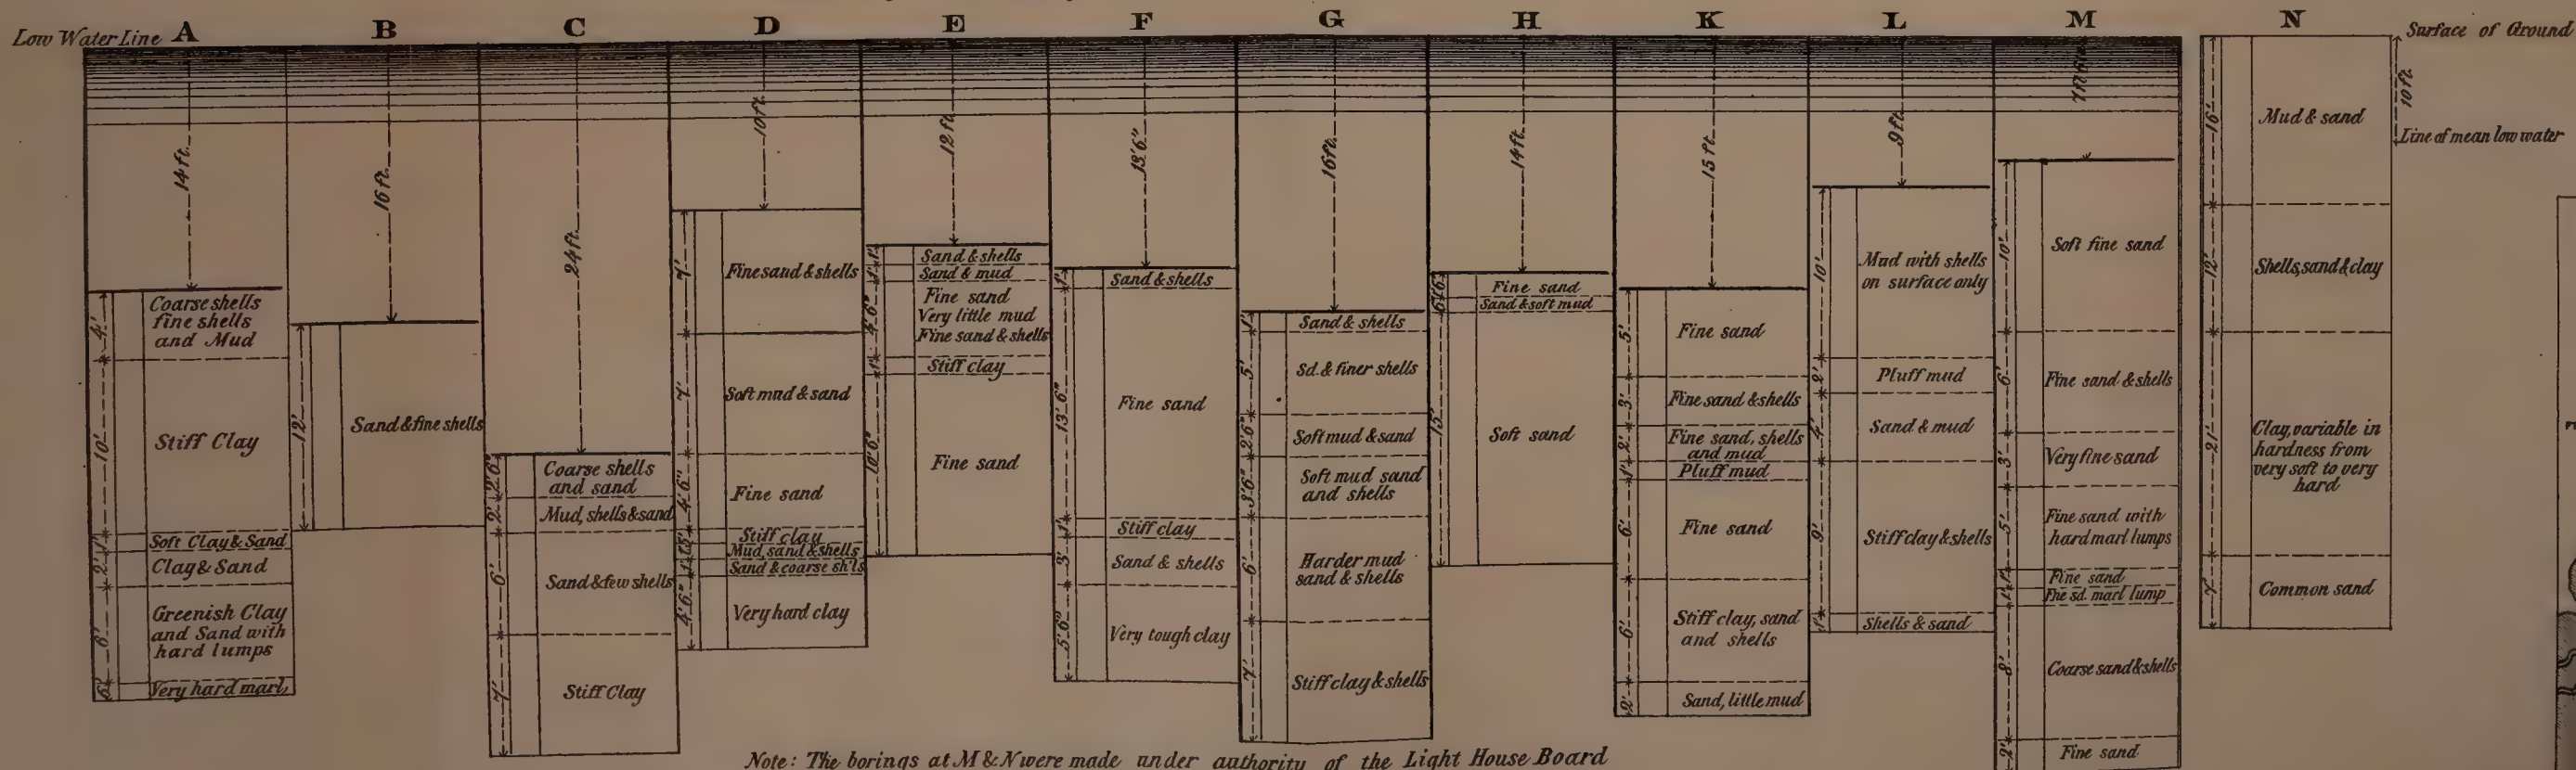 A B C D E F G H K L M N
Low Water Line
Surface of Ground
10 ft.
Line of mean low water
14 ft.
4'
Coarse shells
fine shells
and Mud
10'
Stiff Clay
1'
Soft Clay & Sand
2'
Clay & Sand
Greenish Clay
and Sand with
hard lumps
6"
Very hard marl,
16 ft.
12'
Sand & fine shells
24 ft.
2' 6"
Coarse shells
and sand
2'
Mud, shells & sand
6'
Sand & few shells
7'
Stiff Clay
10 ft.
7'
Fine sand & shells
7'
Soft mud & sand
4' 6"
Fine sand
Stiff clay
Mud, sand & shells
1'
Sand & coarse sh'ls
4' 6"
Very hard clay
12 ft.
1'
Sand & shells
1'
Sand & mud
4' 6"
Fine sand
Very little mud
Fine sand & shells
1'
Stiff clay
10' 6"
Fine sand
13' 6"
1'
Sand & shells
13' 6"
Fine sand
1'
Stiff clay
3'
Sand & shells
5' 6"
Very tough clay
16 ft.
1'
Sand & shells
5'
Sd. & finer shells
2' 6"
Soft mud & sand
3' 6"
Soft mud sand
and shells
6'
Harder mud
sand & shells
7'
Stiff clay & shells
14 ft.
Fine sand
Sand & soft mud
15'
Soft sand
15 ft.
5'
Fine sand
3'
Fine sand & shells
2'
Fine sand, shells
and mud
1'
Pluff mud
6'
Fine sand
6'
Stiff clay, sand
and shells
2'
Sand, little mud
9 ft.
10'
Mud with shells
on surface only
2'
Pluff mud
4'
Sand & mud
9'
Stiff clay & shells
1'
Shells & sand
10'
Soft fine sand
6'
Fine sand & shells
3'
Very fine sand
5'
Fine sand with
hard marl lumps
1'
Fine sand
1'
Fne sd. marl lump
8'
Coarse sand & shells
2'
Fine sand
16'
Mud & sand
12'
Shells, sand & clay
21'
Clay, variable in
hardness from
very soft to very
hard
7'
Common sand
Note: The borings at M & N were made under authority of the Light House Board